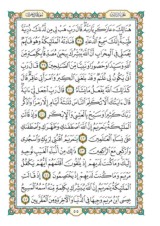 هُنَالِكَ دَعَا زَكَرِيَّا رَبَّهُ قَالَ رَبِّ هَبْ لِي مِن لَّدُنكَ ذُرِّيَّةً
طَيِّبَةً إِنَّكَ سَمِيعُ الدُّعَاءِ فَنَادَتْهُ الْمَلَائِكَةُ وَهُوَ قَائِمٌ
يُصَلِّي فِي الْمِحْرَابِ أَنَّ اللَّهَ يُبَشِّرُكَ بِيَحْيَىٰ مُصَدِّقًا بِكَلِمَةٍ مِّنَ
اللَّهِ وَسَيِّدًا وَحَصُورًا وَنَبِيًّا مِّنَ الصَّالِحِينَ قَالَ رَبِّ أَنَّىٰ
يَكُونُ لِي غُلَامٌ وَقَدْ بَلَغَنِيَ الْكِبَرُ وَامْرَأَتِي عَاقِرٌ قَالَ
كَذَٰلِكَ اللَّهُ يَفْعَلُ مَا يَشَاءُ قَالَ رَبِّ اجْعَل لِّي آيَةً
قَالَ آيَتُكَ أَلَّا تُكَلِّمَ النَّاسَ ثَلَاثَةَ أَيَّامٍ إِلَّا رَمْزًا وَاذْكُر
رَّبَّكَ كَثِيرًا وَسَبِّحْ بِالْعَشِيِّ وَالْإِبْكَارِ وَإِذْ قَالَتِ الْمَلَائِكَةُ
يَا مَرْيَمُ إِنَّ اللَّهَ اصْطَفَاكِ وَطَهَّرَكِ وَاصْطَفَاكِ عَلَىٰ نِسَاءِ
الْعَالَمِينَ يَا مَرْيَمُ اقْنُتِي لِرَبِّكِ وَاسْجُدِي
وَارْكَعِي مَعَ الرَّاكِعِينَ ذَٰلِكَ مِنْ أَنبَاءِ الْغَيْبِ نُوحِيهِ
إِلَيْكَ وَمَا كُنتَ لَدَيْهِمْ إِذْ يُلْقُونَ أَقْلَامَهُمْ أَيُّهُمْ يَكْفُلُ
مَرْيَمَ وَمَا كُنتَ لَدَيْهِمْ إِذْ يَخْتَصِمُونَ إِذْ قَالَتِ
الْمَلَائِكَةُ يَا مَرْيَمُ إِنَّ اللَّهَ يُبَشِّرُكِ بِكَلِمَةٍ مِّنْهُ اسْمُهُ الْمَسِيحُ
عِيسَى ابْنُ مَرْيَمَ وَجِيهًا فِي الدُّنْيَا وَالْآخِرَةِ وَمِنَ الْمُقَرَّبِينَ